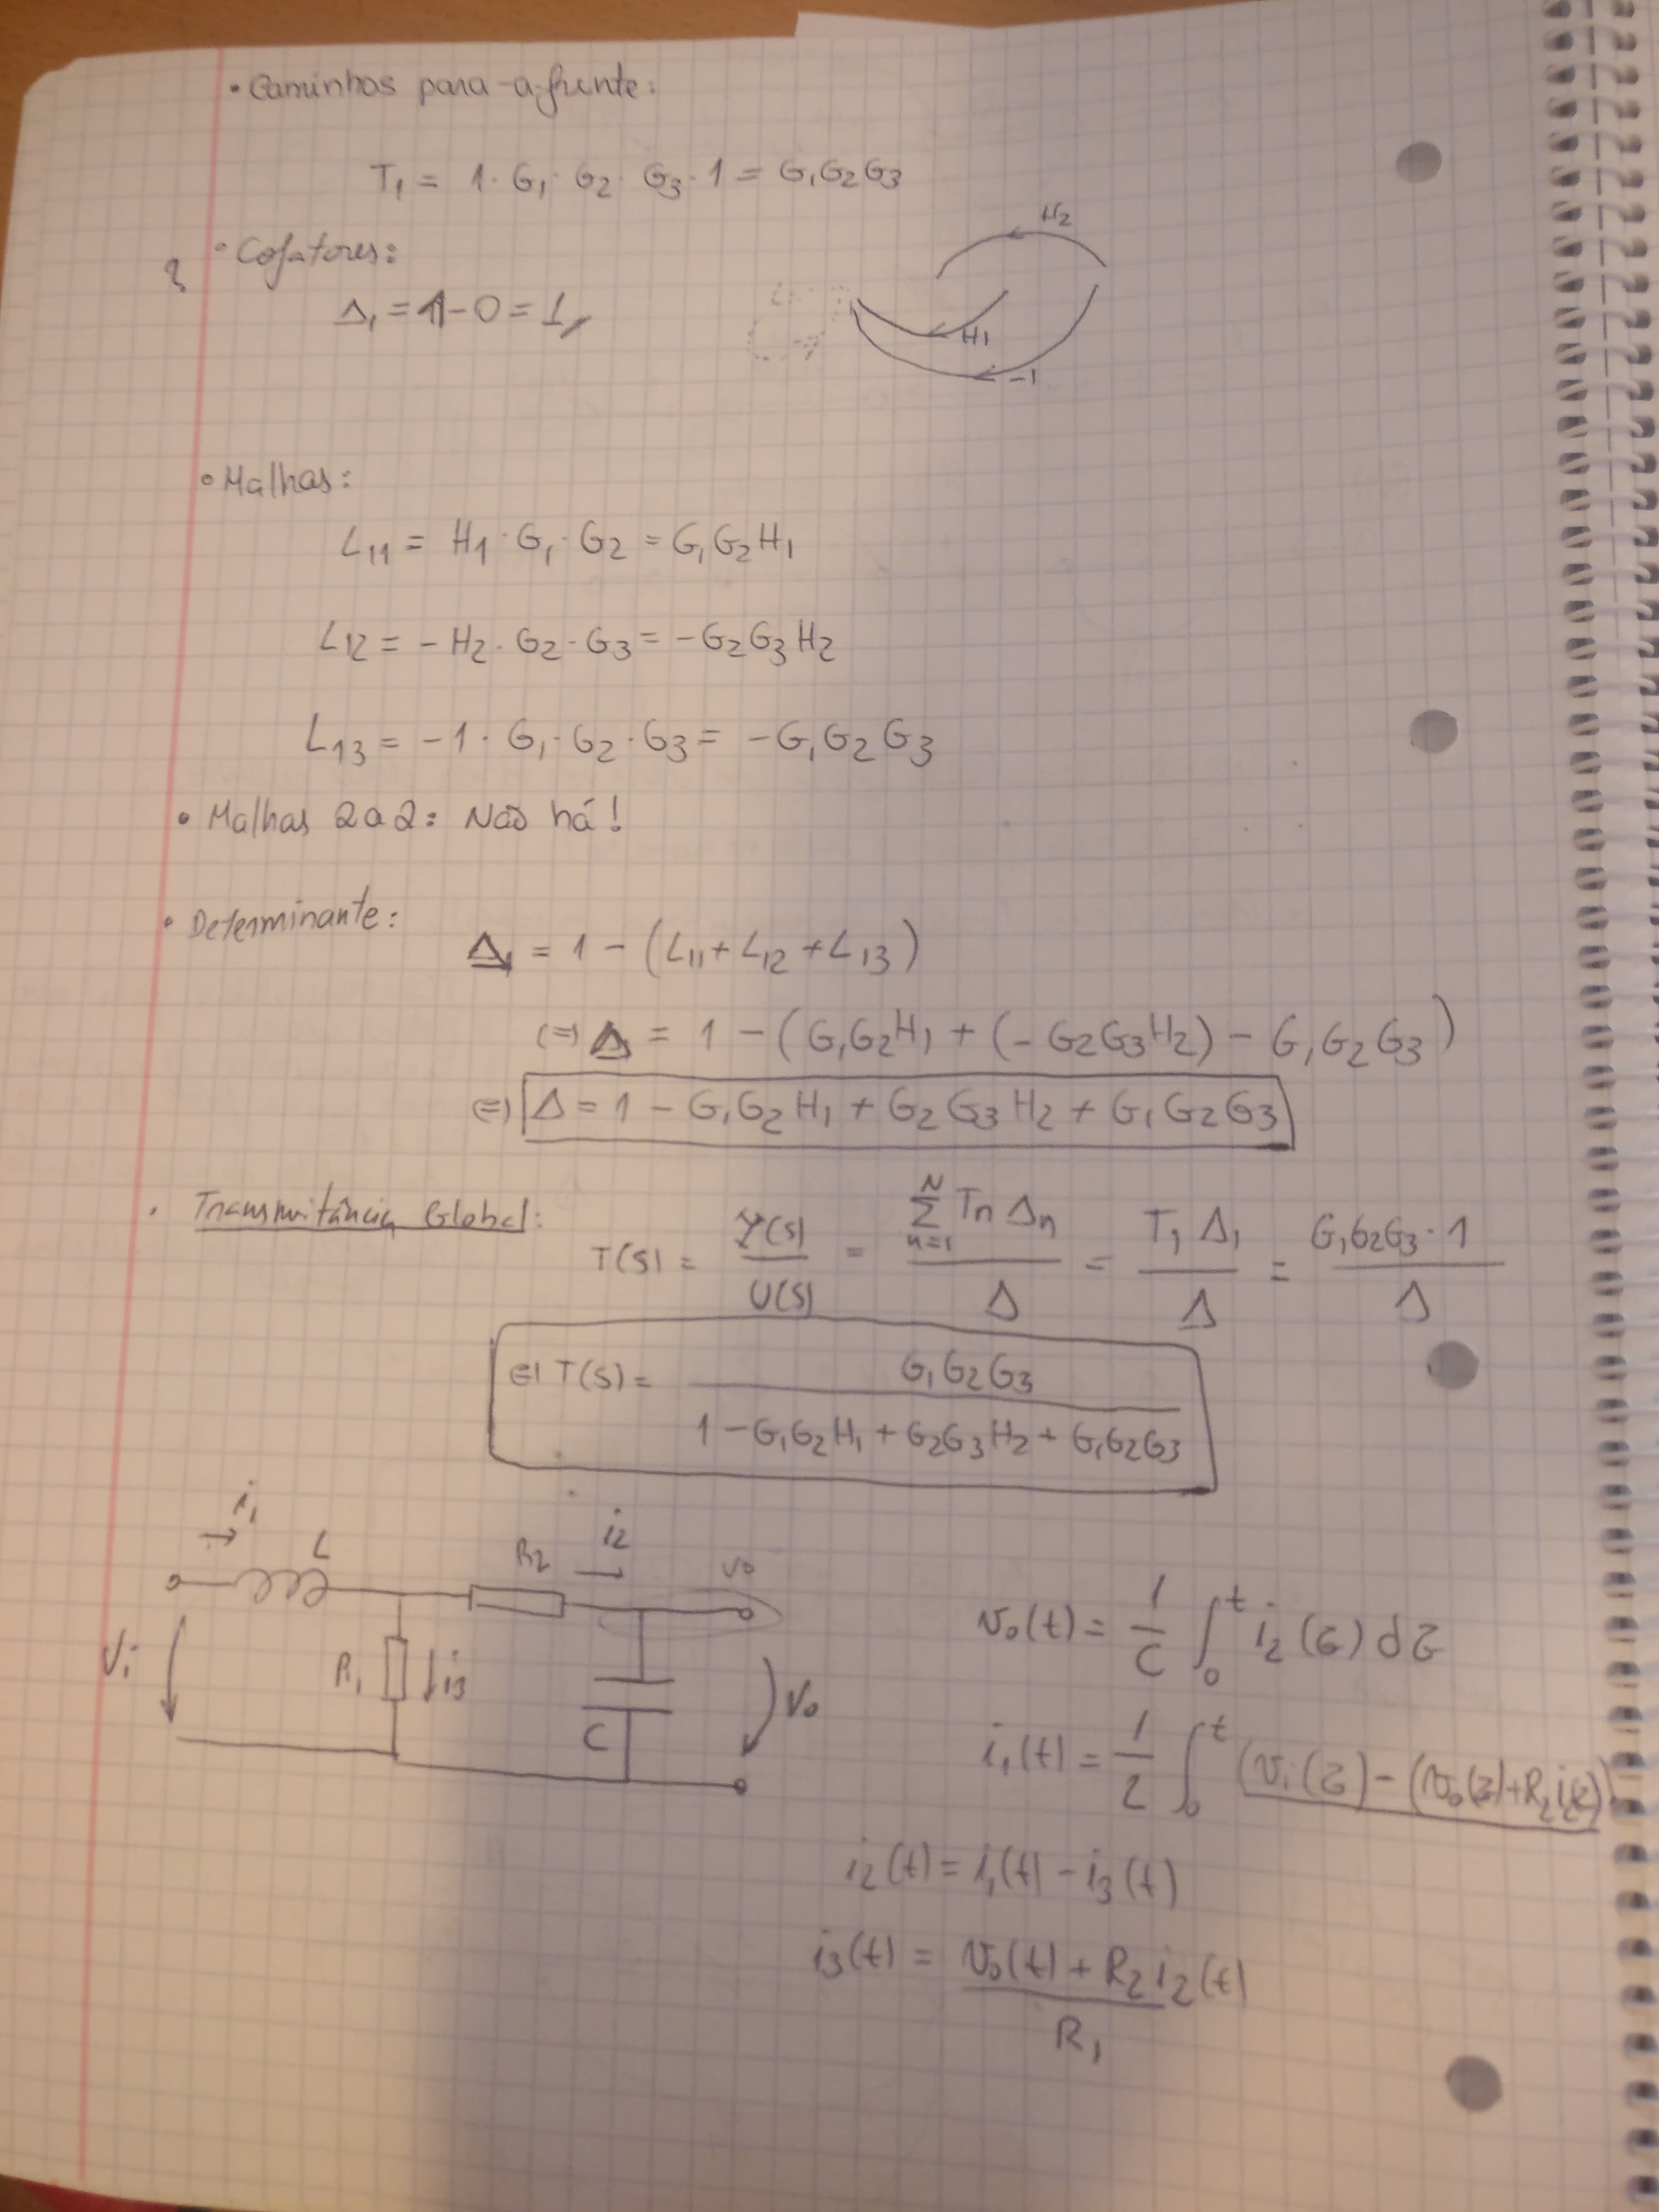 • Caminhos para-a-frente:
T₁ = 1 · G₁ · G₂ · G₃ · 1 = G₁G₂G₃
H₂
? • Cofatores:
Δ₁ = 1 - 0 = 1
H1
-1
• Malhas:
L₁₁ = H1 · G₁ · G₂ = G₁G₂H₁
L₁₂ = -H₂ · G₂ · G₃ = -G₂G₃H₂
L₁₃ = -1 · G₁ · G₂ · G₃ = -G₁G₂G₃
• Malhas 2a2: Não há!
• Determinante:
Δ = 1 - (L₁₁ + L₁₂ + L₁₃)
(=) Δ = 1 - (G₁G₂H₁ + (-G₂G₃H₂) - G₁G₂G₃)
(=) Δ = 1 - G₁G₂H₁ + G₂G₃H₂ + G₁G₂G₃
• Transmitância Global:
T(s) = Y(s)/U(s) = Σ_{n=1}^{N} Tn Δn / Δ = T₁ Δ₁ / Δ = G₁G₂G₃ · 1 / Δ
(=) T(s) = G₁G₂G₃ / 1 - G₁G₂H₁ + G₂G₃H₂ + G₁G₂G₃
i₁
L
R₂
i₂
vo
Vi
R₁
i₃
C
Vo
vo(t) = 1/C ∫₀ᵗ i₂(τ) dτ
i₁(t) = 1/L ∫₀ᵗ (vi(τ) - (vo(τ) + R₂i₂(τ))
i₂(t) = i₁(t) - i₃(t)
i₃(t) = vo(t) + R₂ i₂(t) / R₁